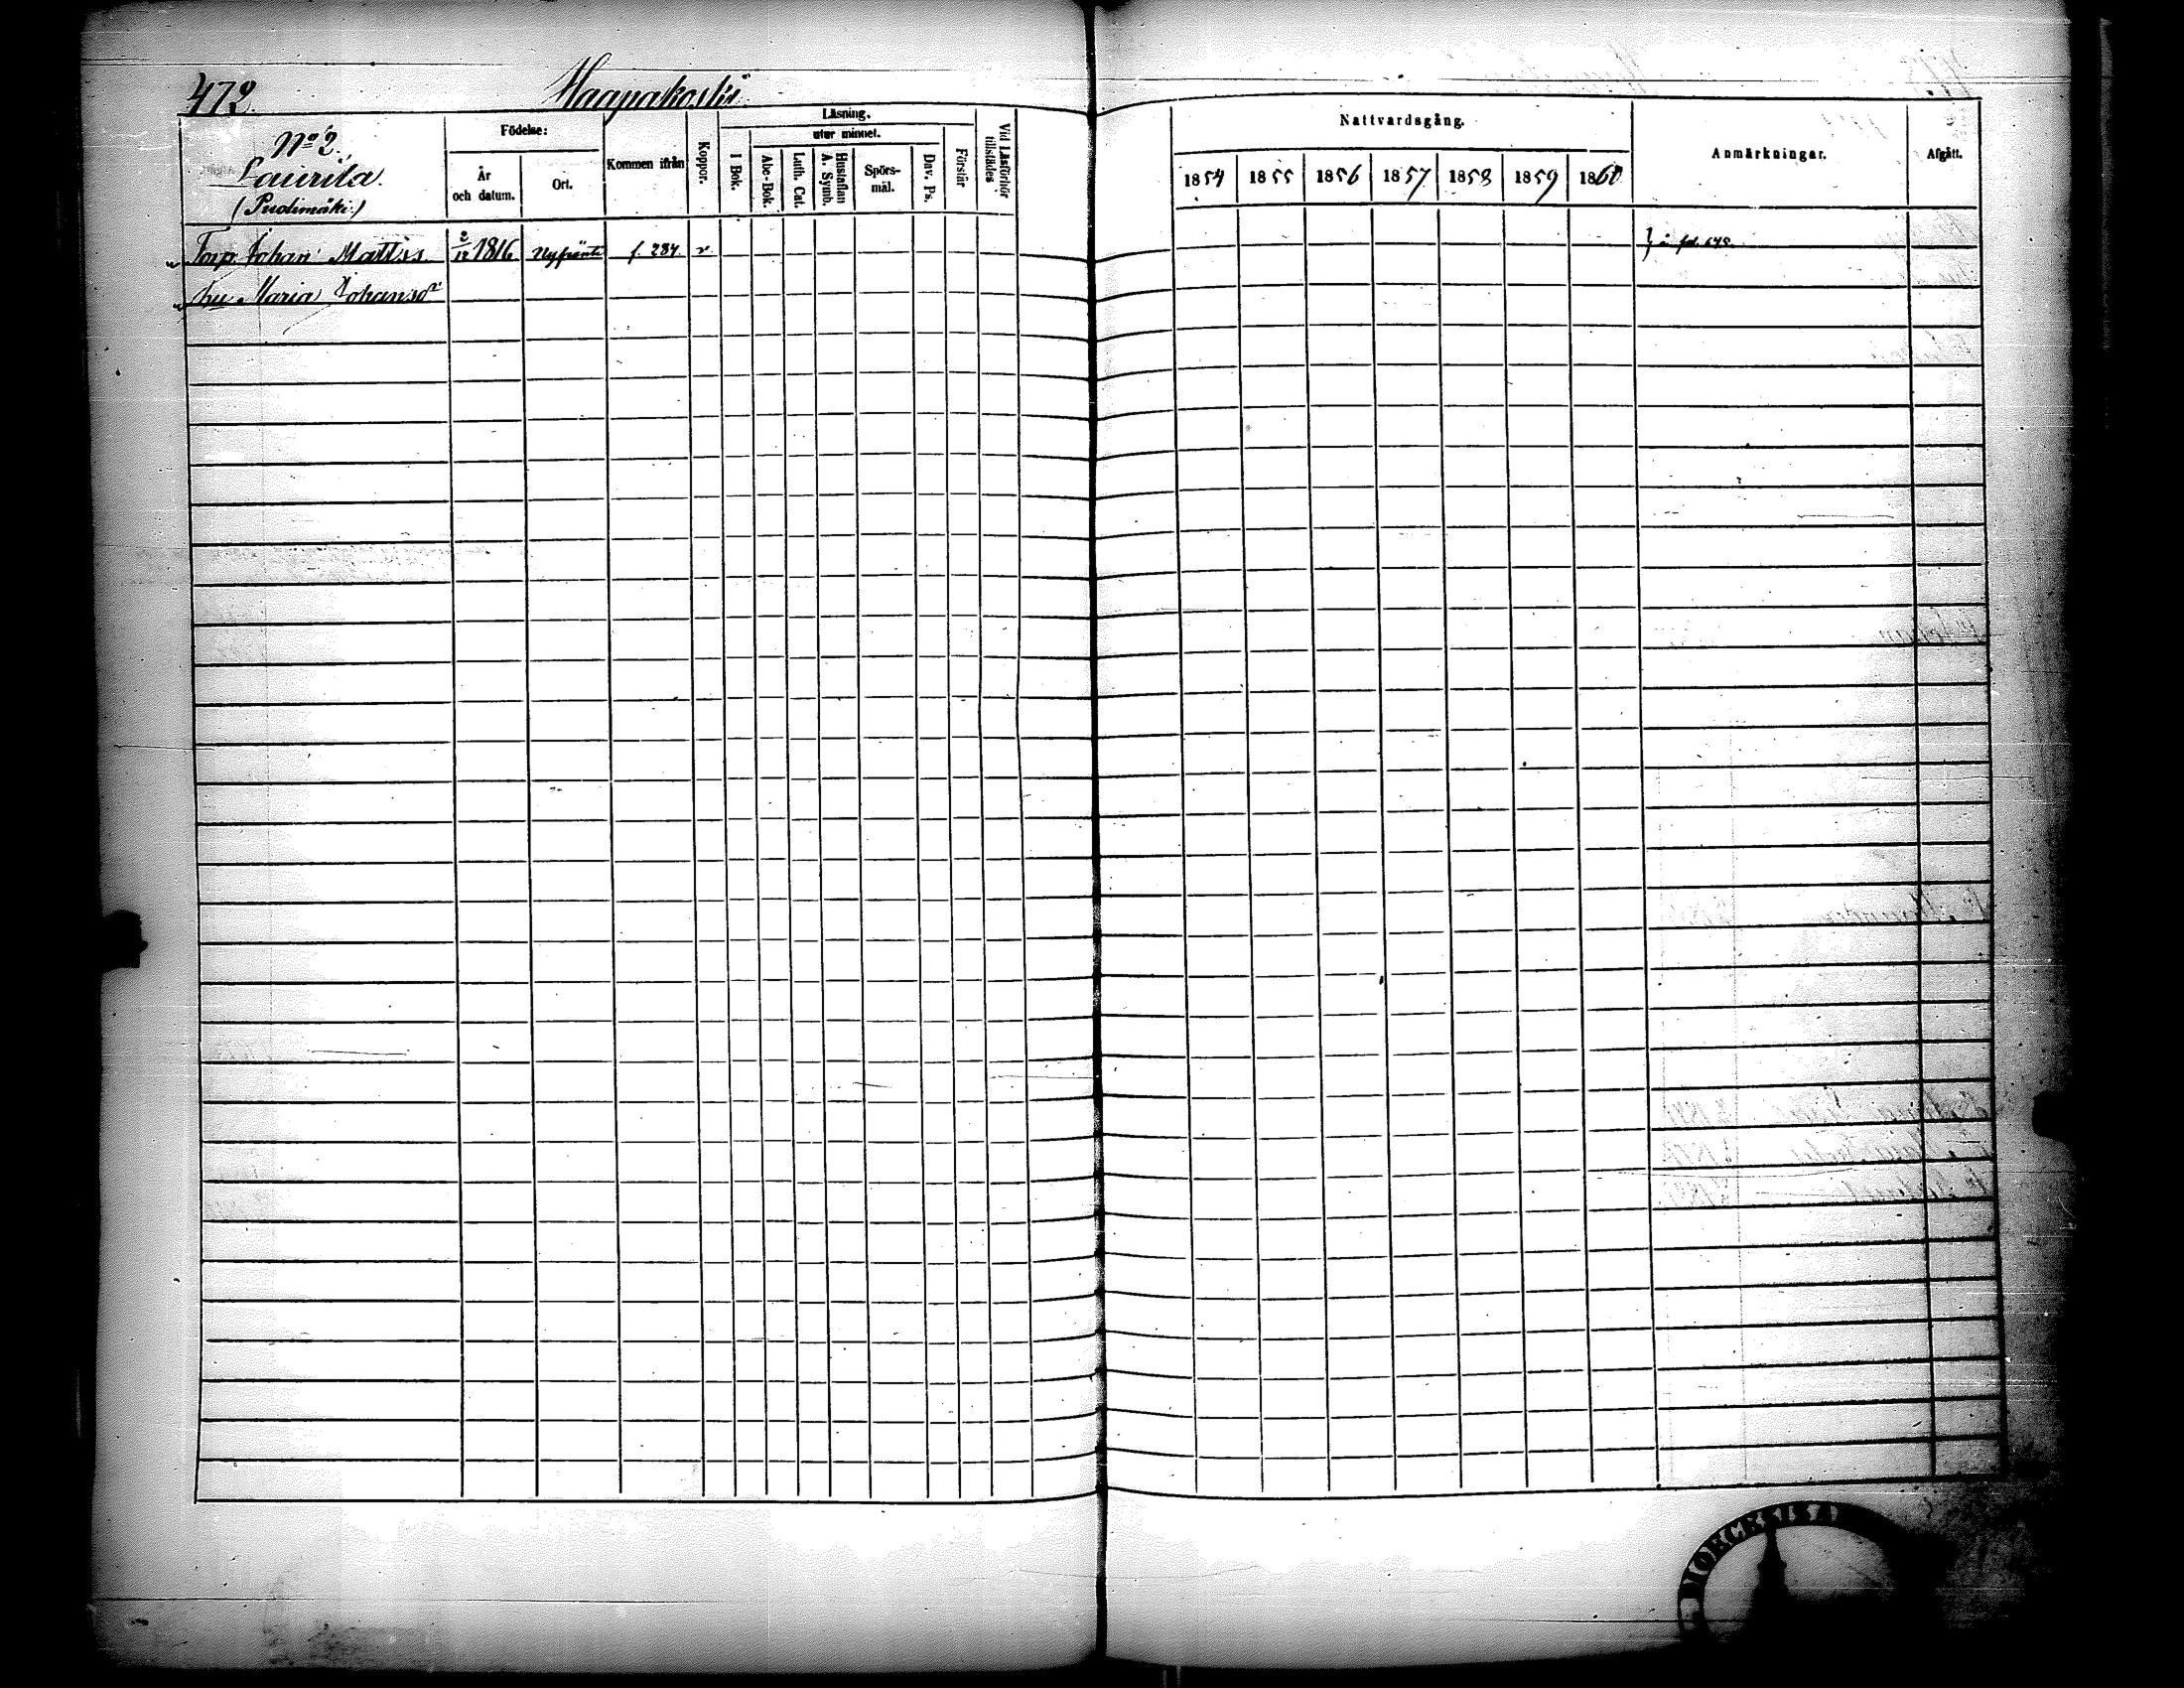 472.
Haapakoski
No 2.
Laurila.
(Pudimäki.)
Födelse:
År
och datum.
Ort.
Kommen ifrån
Koppor.
Läsning.
I Bok.
utur minnet.
Abc-Bok.
Luth. Cat.
Hustaflan
A. Symb.
Spörs-
mål.
Dav. Ps.
Förstår
Vid Läsförhör
tillstädes
Nattvardsgång.
1854 1855 1856 1857 1858 1859 1860
Anmärkningar.
Afgått.
Torp. Johan Mattss. 2/12 1816 f. 284. v } å fol. 645.
hu Maria Johansdr